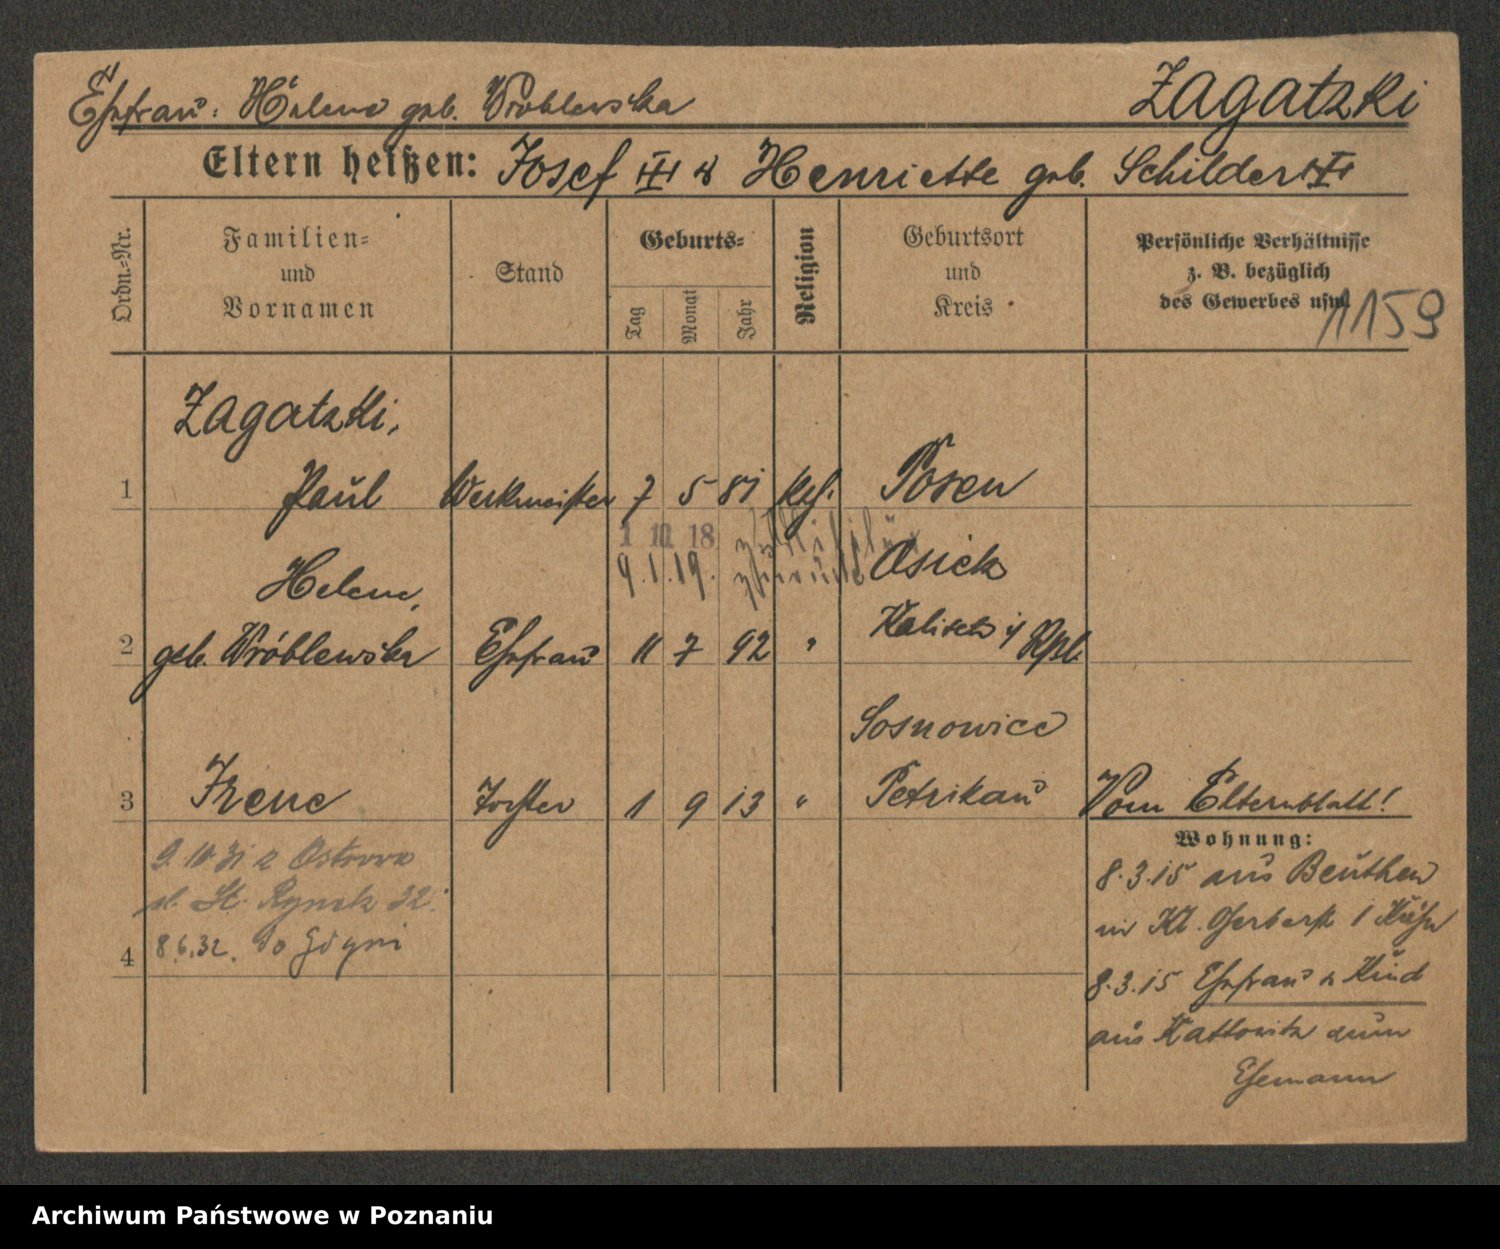 Ehefrau: Helene geb. Wróblewska
Zagatzki
Eltern heißen: Josef u Henriette geb. Schilder
Ordn.-Nr.
Familien-
und
Vornamen
Stand
Geburts-
Tag
Monat
Jahr
Religion
Geburtsort
und
Kreis
Persönliche Verhältnisse
z. B. bezüglich
des Gewerbes usw.
1159
Zagatzki,
1 Paul Werkmeister 7 5 81 kth. Posen
1 11 18
9.1.19.
Helene, Osiek
Kalisch
2 geb. Wróblewska Ehefrau 11 7 92 "
Sosnowice
3 Irene Tochter 1 9 13 " Petrikau Vom Elternblatt!
Wohnung:
9. 10 31 z Ostrowa
pl. St. Rynek 32.
4 8.6.32. do Gdyni
8.3.15 aus Beuthen
in Kl. Gerberstr. 1
8.3.15 Ehefrau u Kind
aus Kattowitz zum
Ehemann
Archiwum Państwowe w Poznaniu